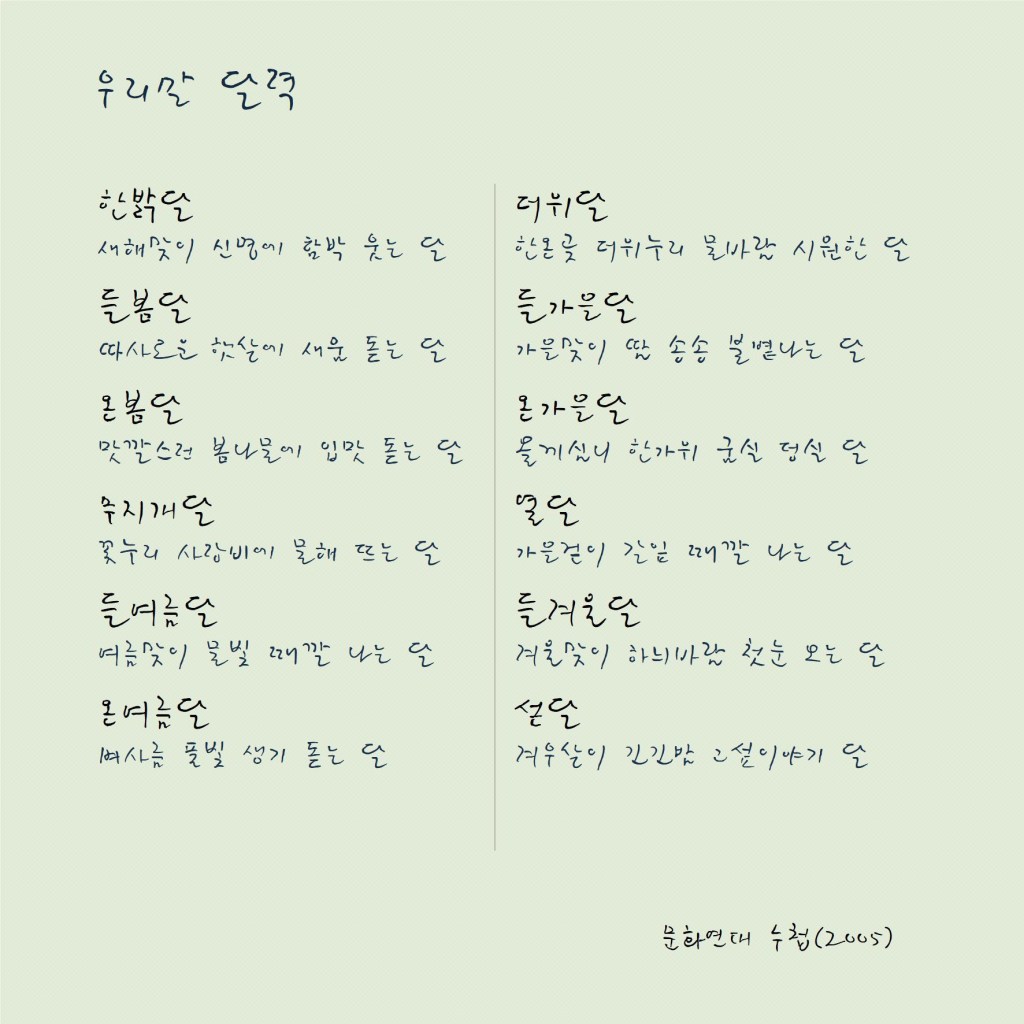 우리말 달력
한밝달
새해맞이 신명에 함박 웃는 달
들봄달
따사로운 햇살에 새움 돋는 달
온봄달
맛깔스런 봄나물에 입맛 돋는 달
무지개달
꽃누리 사랑비에 물해 뜨는 달
들여름달
여름맞이 물빛 때깔 나는 달
온여름달
벼사름 풀빛 생기 돋는 달
더위달
한온곳 더위누리 물바람 시원한 달
들가을달
가을맞이 땀 송송 불볕나는 달
온가을달
올게심니 한가위 굼실 덩실 달
열달
가을걷이 갈잎 때깔 나는 달
들겨울달
겨울맞이 하늬바람 첫눈 오는 달
섣달
겨우살이 긴긴밤 고섶이야기 달
문화연대 수첩(2005)